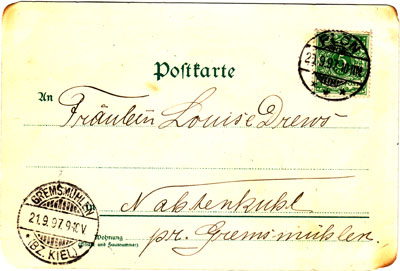 Postkarte
PLÖN
21.9.97
5
An
Fräulein Louise Drews
Nahtenkuhl
GREMSMÜHLEN
21.9.97. 9-10V
(BZ. KIEL)
Wohnung
(Straße und Hausnummer)
pr. Gremsmühlen.